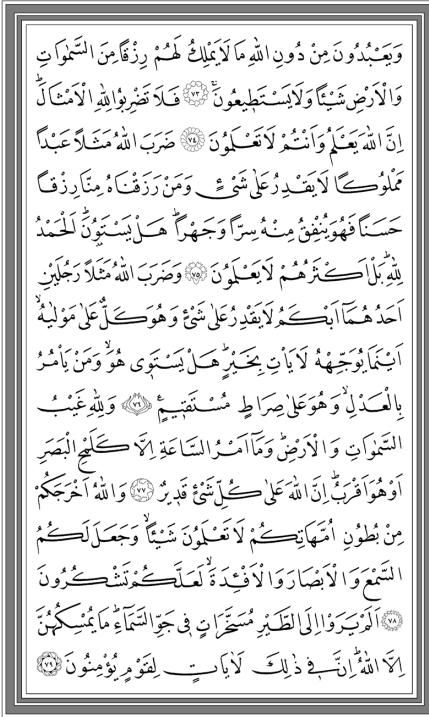 وَيَعْبُدُونَ مِنْ دُونِ اللّٰهِ مَا لَا يَمْلِكُ لَهُمْ رِزْقًا مِنَ السَّمٰوَاتِ
وَالْاَرْضِ شَيْـًٔا وَلَا يَسْتَط۪يعُونَۚ ﴿٧٣﴾ فَلَا تَضْرِبُوا لِلّٰهِ الْاَمْثَالَۜ
اِنَّ اللّٰهَ يَعْلَمُ وَاَنْتُمْ لَا تَعْلَمُونَ ﴿٧٤﴾ ضَرَبَ اللّٰهُ مَثَلًا عَبْدًا
مَمْلُوكًا لَا يَقْدِرُ عَلٰى شَيْءٍ وَمَنْ رَزَقْنَاهُ مِنَّا رِزْقًا
حَسَنًا فَهُوَ يُنْفِقُ مِنْهُ سِرًّا وَجَهْرًاۜ هَلْ يَسْتَوُ۫نَۜ اَلْحَمْدُ
لِلّٰهِۜ بَلْ اَكْثَرُهُمْ لَا يَعْلَمُونَ ﴿٧٥﴾ وَضَرَبَ اللّٰهُ مَثَلًا رَجُلَيْنِ
اَحَدُهُمَٓا اَبْكَمُ لَا يَقْدِرُ عَلٰى شَيْءٍ وَهُوَ كَلٌّ عَلٰى مَوْلٰيهُۙ
اَيْنَمَا يُوَجِّهْهُ لَا يَأْتِ بِخَيْرٍۜ هَلْ يَسْتَو۪ي هُوَۙ وَمَنْ يَأْمُرُ
بِالْعَدْلِۙ وَهُوَ عَلٰى صِرَاطٍ مُسْتَق۪يمٍ۟ ﴿٧٦﴾ وَلِلّٰهِ غَيْبُ
السَّمٰوَاتِ وَالْاَرْضِۜ وَمَٓا اَمْرُ السَّاعَةِ اِلَّا كَلَمْحِ الْبَصَرِ
اَوْ هُوَ اَقْرَبُۜ اِنَّ اللّٰهَ عَلٰى كُلِّ شَيْءٍ قَد۪يرٌ ﴿٧٧﴾ وَاللّٰهُ اَخْرَجَكُمْ
مِنْ بُطُونِ اُمَّهَاتِكُمْ لَا تَعْلَمُونَ شَيْـًٔاۙ وَجَعَلَ لَكُمُ
السَّمْعَ وَالْاَبْصَارَ وَالْاَفْـِٔدَةَۙ لَعَلَّكُمْ تَشْكُرُونَ
﴿٧٨﴾ اَلَمْ يَرَوْا اِلَى الطَّيْرِ مُسَخَّرَاتٍ ف۪ي جَوِّ السَّمَٓاءِۜ مَا يُمْسِكُهُنَّ
اِلَّا اللّٰهُۜ اِنَّ ف۪ي ذٰلِكَ لَاٰيَاتٍ لِقَوْمٍ يُؤْمِنُونَ ﴿٧٩﴾